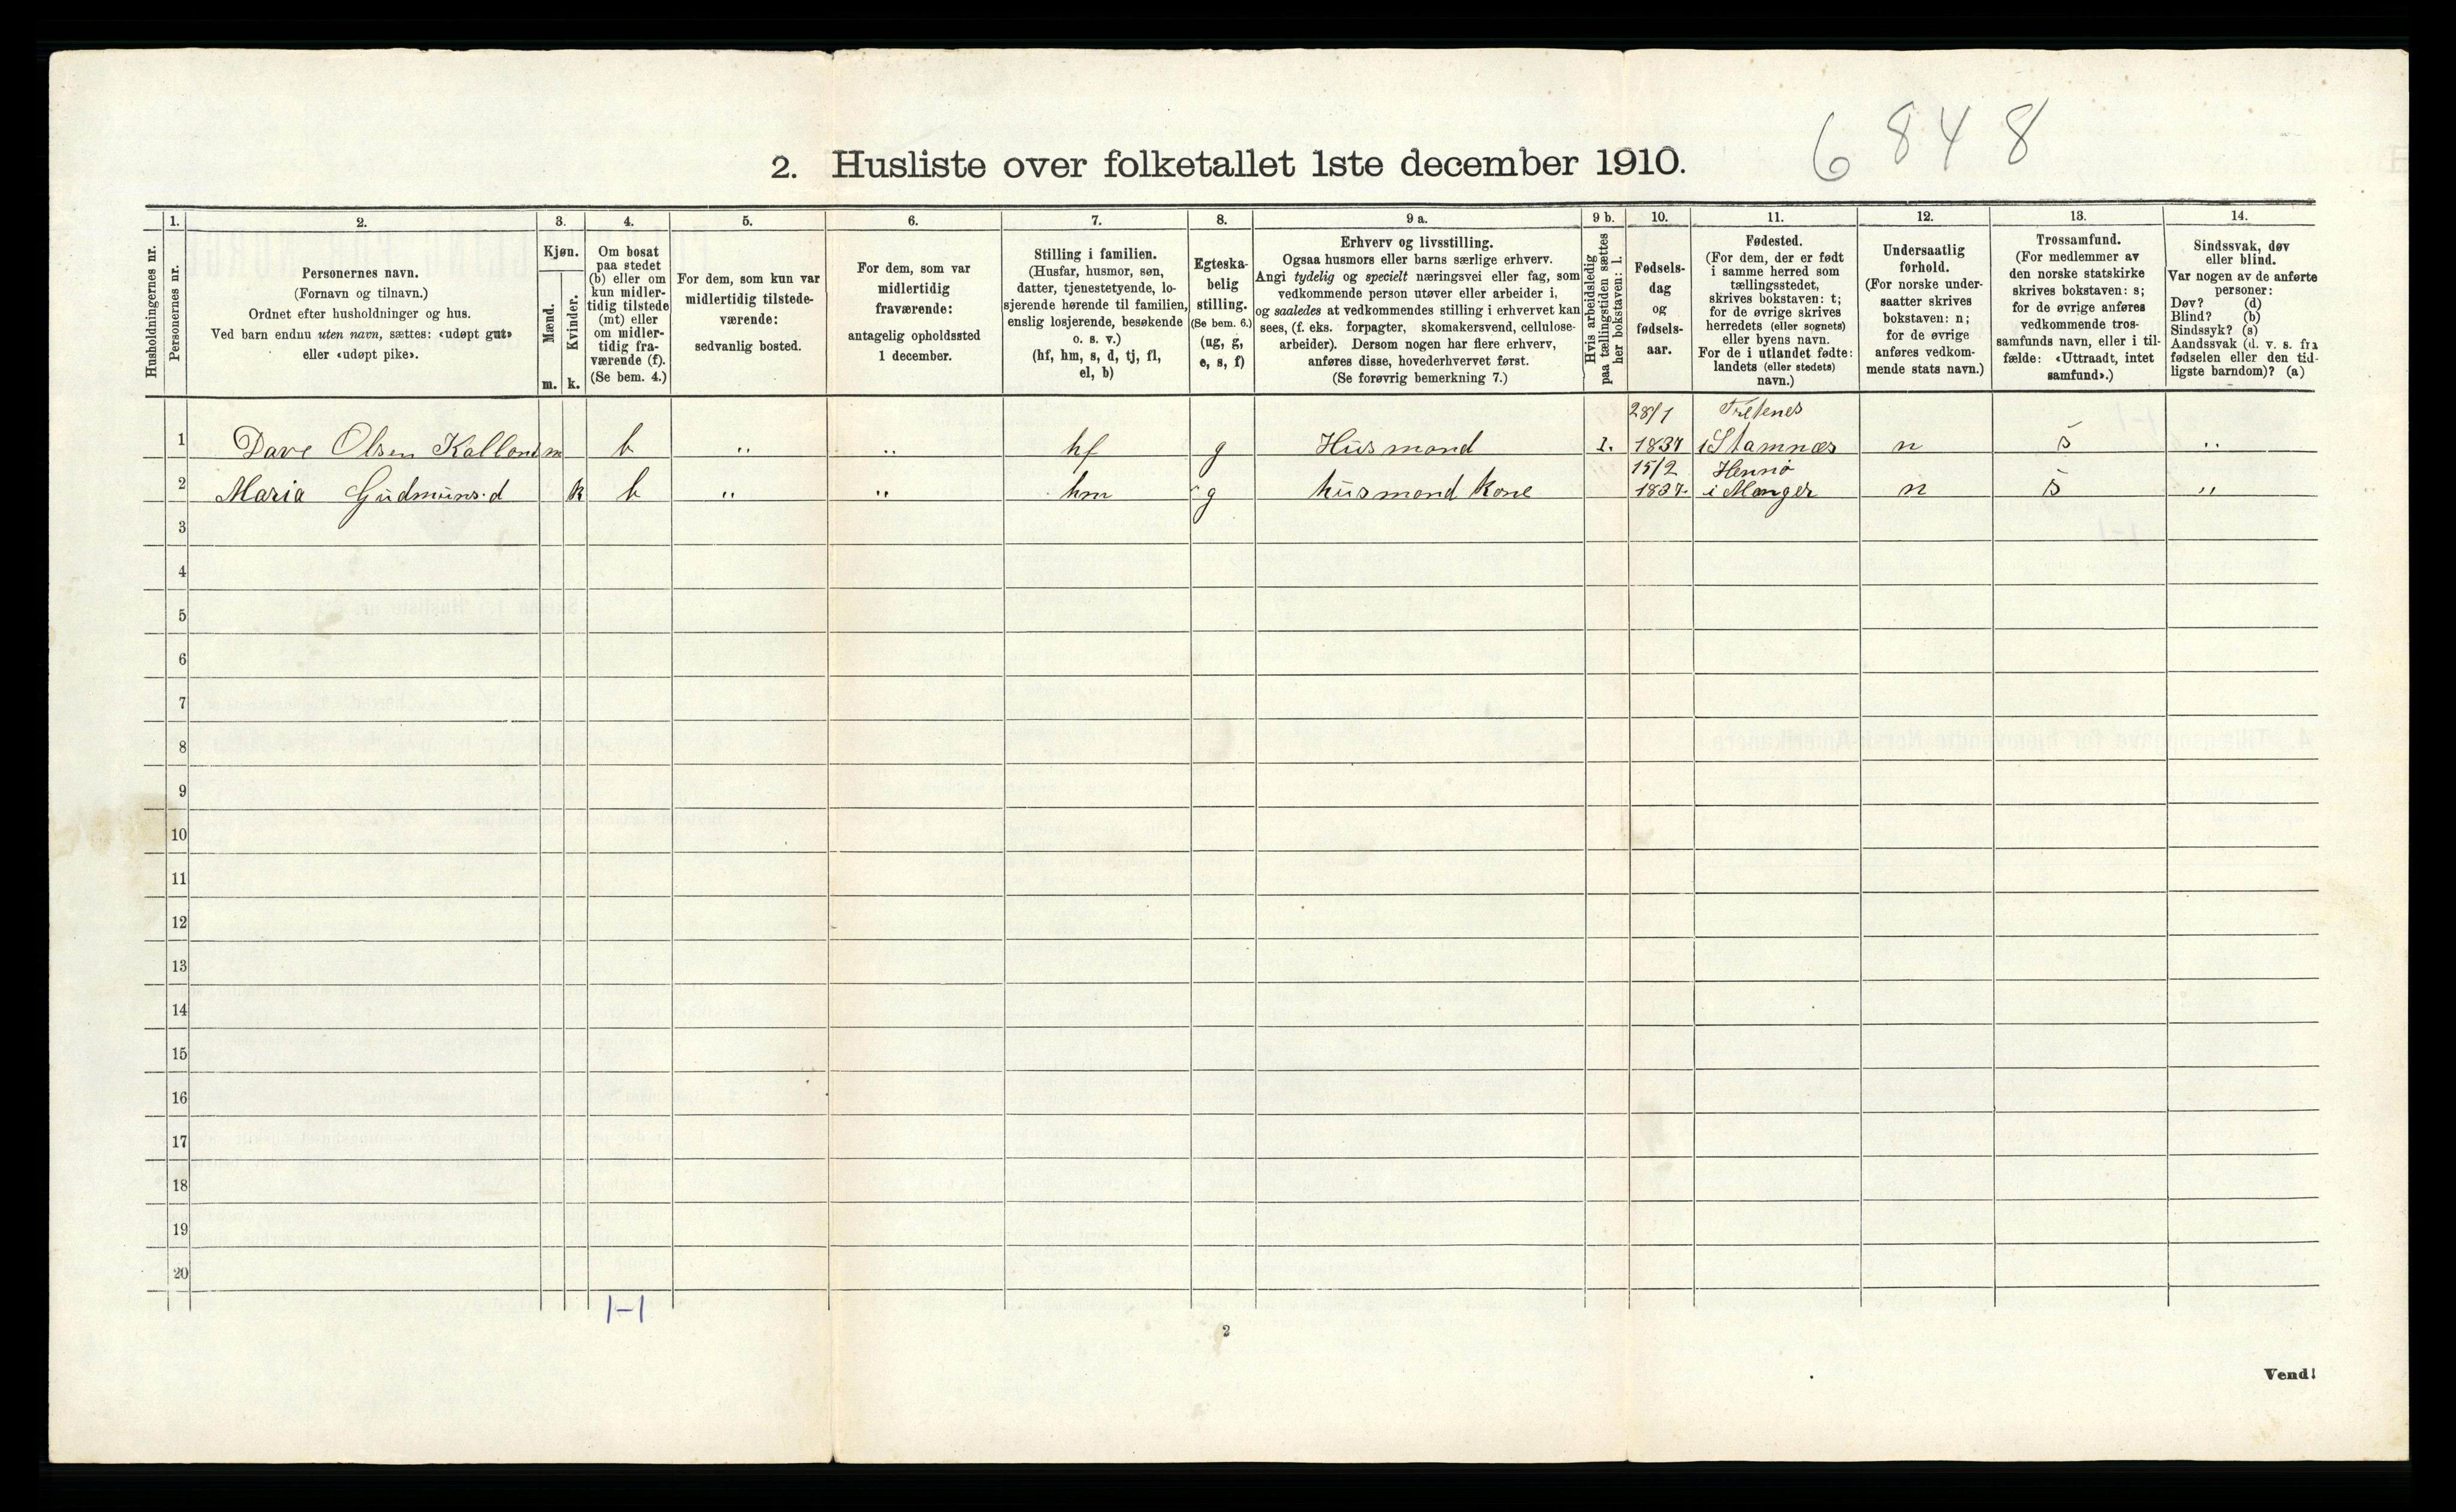 6848
2. Husliste over folketallet 1ste december 1910.
Husholdningernes nr.
1.
Personernes nr.
2.
Personernes navn.
(Fornavn og tilnavn.)
Ordnet efter husholdninger og hus.
Ved barn endnu uten navn, sættes: «udøpt gut»
eller «udøpt pike».
3.
Kjøn.
Mænd.
m.
Kvinder.
k.
4.
Om bosat
paa stedet
(b) eller om
kun midler-
tidig tilstede
(mt) eller
om midler-
tidig fra-
værende (f).
(Se bem. 4.)
5.
For dem, som kun var
midlertidig tilstede-
værende:
sedvanlig bosted.
6.
For dem, som var
midlertidig
fraværende:
antagelig opholdssted
1 december.
7.
Stilling i familien.
(Husfar, husmor, søn,
datter, tjenestetyende, lo-
sjerende hørende til familien,
enslig losjerende, besøkende
o. s. v.)
(hf, hm, s, d, tj, fl,
el, b)
8.
Egteska-
belig
stilling.
(Se bem. 6.)
(ug, g,
e, s, f)
9 a.
Erhverv og livsstilling.
Ogsaa husmors eller barns særlige erhverv.
Angi tydelig og specielt næringsvei eller fag, som
vedkommende person utøver eller arbeider i,
og saaledes at vedkommendes stilling i erhvervet kan
sees, (f. eks. forpagter, skomakersvend, cellulose-
arbeider). Dersom nogen har flere erhverv,
anføres disse, hovederhvervet først.
(Se forøvrig bemerkning 7.)
9 b.
Hvis arbeidsledig
paa tællingstiden sættes
her bokstaven: l.
10.
Fødsels-
dag
og
fødsels-
aar.
11.
Fødested.
(For dem, der er født
i samme herred som
tællingsstedet,
skrives bokstaven: t;
for de øvrige skrives
herredets (eller sognets)
eller byens navn.
For de i utlandet fødte:
landets (eller stedets)
navn.)
12.
Undersaatlig
forhold.
(For norske under-
saatter skrives
bokstaven: n;
for de øvrige
anføres vedkom-
mende stats navn.)
13.
Trossamfund.
(For medlemmer av
den norske statskirke
skrives bokstaven: s;
for de øvrige anføres
vedkommende tros-
samfunds navn, eller i til-
fælde: «Uttraadt, intet
samfund».)
14.
Sindssvak, døv
eller blind.
Var nogen av de anførte
personer:
Døv? (d)
Blind? (b)
Sindssyk? (s)
Aandssvak (d. v. s. fra
fødselen eller den tid-
ligste barndom)? (a)
28/1
1 Olsen m b " " hf g Husmand 1837 i Stamnæs n s "
15/2 Hennø
2 Maria Gudmuns.d k b " " hm g husmand Kone 1837. i Manger n s "
3
4
5
6
7
8
9
10
11
12
13
14
15
16
17
18
19
20
1-1
2
Vend!